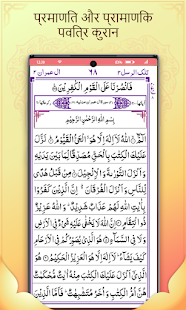 प्रमाणति और प्रामाणकि
पवति्र कुरान
تلك الرسل ٣ ال عمران ٣
فَانْصُرْنَا عَلَى الْقَوْمِ الْكٰفِرِيْنَ
بِسْمِ اللهِ الرَّحْمٰنِ الرَّحِيْمِ
الٓمّٓ اللهُ لَاۤ اِلٰهَ اِلَّا هُوَ الْحَيُّ الْقَيُّوْمُ نَزَّلَ
عَلَيْكَ الْكِتٰبَ بِالْحَقِّ مُصَدِّقًا لِّمَا بَيْنَ يَدَيْهِ وَ
اَنْزَلَ التَّوْرٰىةَ وَالْاِنْجِيْلَ مِنْ قَبْلُ هُدًى لِّلنَّاسِ وَ
اَنْزَلَ الْفُرْقَانَ اِنَّ الَّذِيْنَ كَفَرُوْا بِاٰيٰتِ اللهِ لَهُمْ
عَذَابٌ شَدِيْدٌ وَاللهُ عَزِيْزٌ ذُو انْتِقَامٍ اِنَّ اللهَ
لَا يَخْفٰى عَلَيْهِ شَيْءٌ فِي الْاَرْضِ وَلَا فِي السَّمَآءِ هُوَ
الَّذِيْ يُصَوِّرُكُمْ فِي الْاَرْحَامِ كَيْفَ يَشَآءُ لَاۤ اِلٰهَ اِلَّا
هُوَ الْعَزِيْزُ الْحَكِيْمُ هُوَ الَّذِيْۤ اَنْزَلَ عَلَيْكَ الْكِتٰبَ
مِنْهُ اٰيٰتٌ مُّحْكَمٰتٌ هُنَّ اُمُّ الْكِتٰبِ وَاُخَرُ مُتَشٰبِهٰتٌ